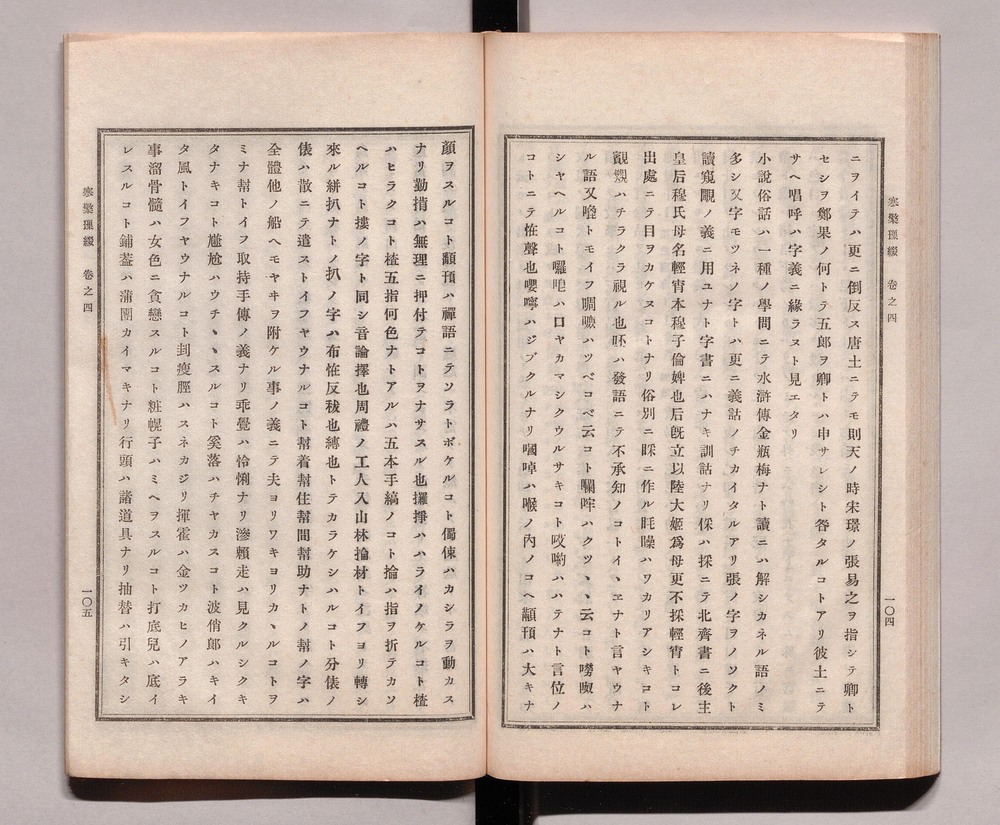 寒檠璅綴 卷之四
一〇四
ニヲイテハ更ニ倒反ス唐土ニテモ則天ノ時宋璟ノ張易之ヲ指シテ卿ト
セシヲ鄭果ノ何トテ五郎ヲ卿トハ申サレシト咎タルコトアリ彼土ニテ
サヘ唱呼ハ字義ニ緣ラスト見エタリ
小說俗話ハ一種ノ學問ニテ水滸傳金瓶梅ナト讀ニハ解シカネル語ノミ
多シ又字モツネノ字トハ更ニ義詁ノチカイタルアリ張ノ字ヲノソクト
讀窺覰ノ義ニ用ユナト字書ニハナキ訓詁ナリ保ハ採ニテ北齊書ニ後主
皇后穆氏母名輕宵本穆子倫婢也后既立以陸大姬爲母更不採輕宵トコレ
出處ニテ目ヲカケヌコトナリ俗別ニ睬ニ作ル眊矂ハワカリアシキコト
覶覼ハチラクラ視ル也呸ハ發語ニテ不承知ノコトイヽヱナト言ヤウナ
ル語又噇トモイフ啁囐ハツベコベ云コト囒哰ハクツヽヽ云コト嘮呶ハ
シヤヘルコト囉唣ハ口ヤカマシクウルサキコト咬喲ハハテナト言位ノ
コトニテ恠聲也嚶嚀ハジブクルナリ嘓啅ハ喉ノ內ノコヘ顢頇ハ大キナ
顔ヲスルコト顢頇ハ禪語ニテソラトボケルコト儞倲ハカシラヲ動カス
ナリ勒掯ハ無理ニ押付テコトヲナサスル也攞掙ハハライノケルコト楂
ハヒラクコト楂五指何色ナトアルハ五本手縞ノコト掄ハ指ヲ折テカソ
ヘルコト搂ノ字ト同シ音論擇也周禮ノ工人入山林掄材トイフヨリ轉シ
來ル絣扒ナトノ扒ノ字ハ布恠反秡也縛也トテカラケシハルコト分俵ノ
俵ハ散ニテ遣ストイフヤウナルコト幇着幇住幇間幇助ナトノ幇ノ字ハ
全體他ノ船ヘモヤヰヲ附ケル事ノ義ニテ夫ヨリワキヨリカヽルコトヲ
ミナ幇トイフ取持手傳ノ義ナリ乖覺ハ怜悧ナリ滲賴走ハ見クルシクキ
タナキコト尲尬ハウチヽヽスルコト奚落ハチヤカスコト波俏郞ハキイ
タ風トイフヤウナルコト刲瘦脛ハスネカジリ揮霍ハ金ツカヒノアラキ
事溜骨髓ハ女色ニ貪戀スルコト粧幌子ハミヘヲスルコト打底兒ハ底イ
レスルコト鋪葢ハ蒲團カイマキナリ行頭ハ諸道具ナリ抽替ハ引キタシ
寒檠璅綴 卷之四
一〇五